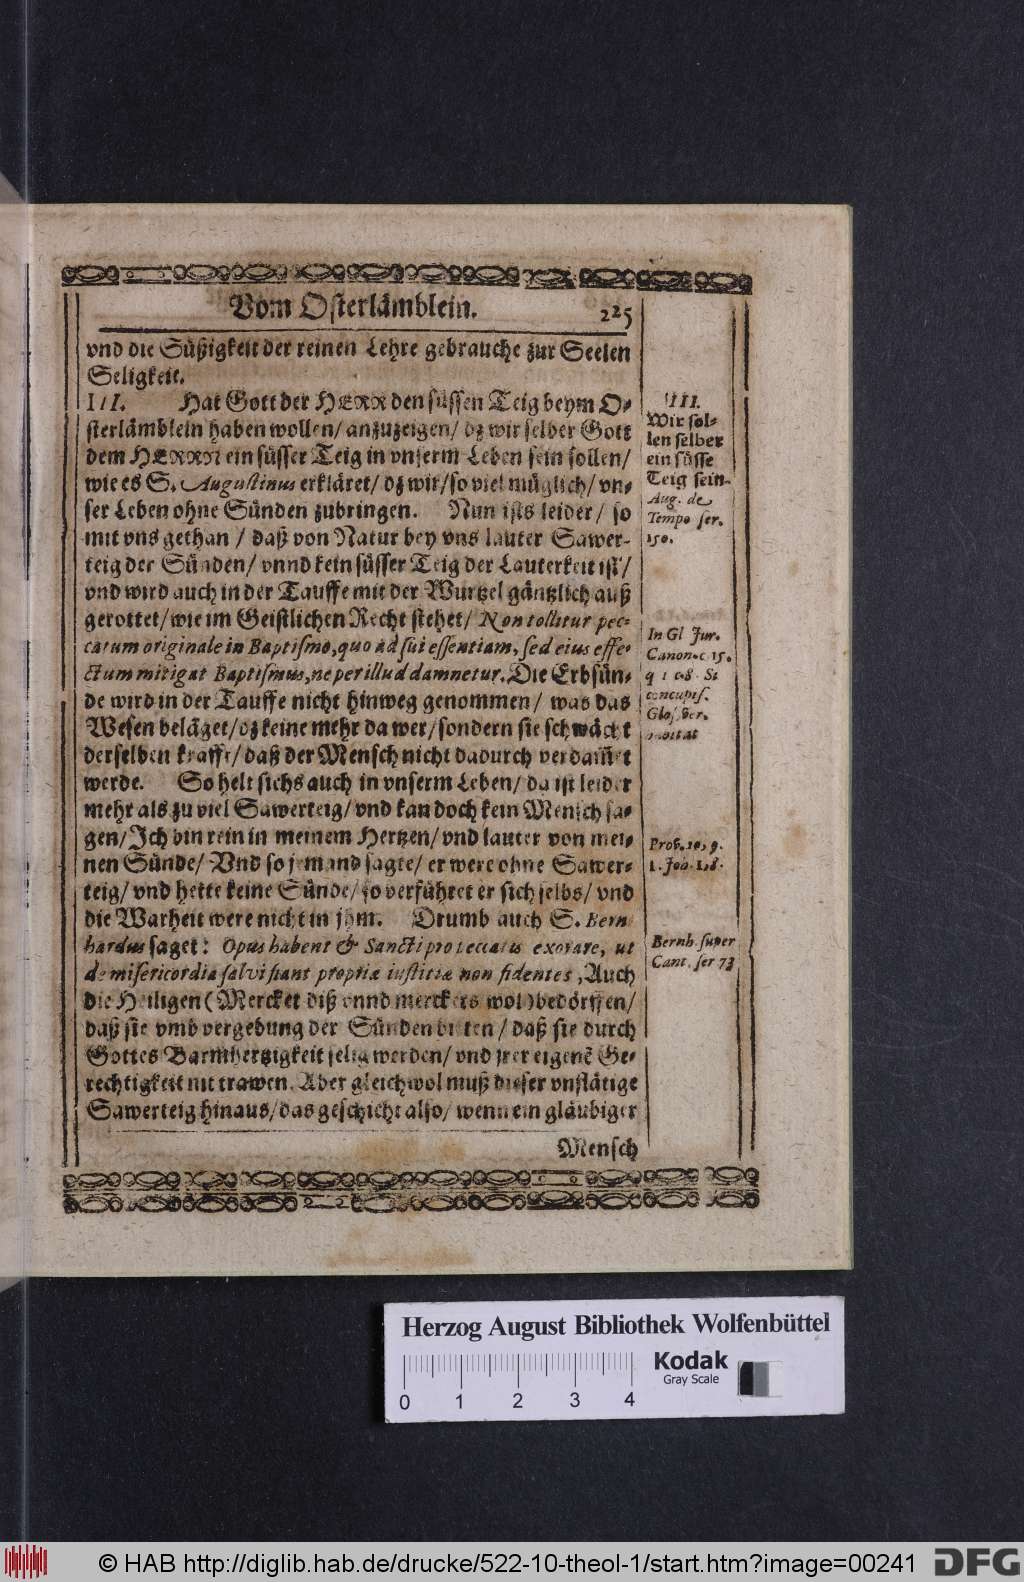 Vom Osterlämblein. 225
vnd die Süßigkeit der reinen Lehre gebrauche zur Seelen
Seligkeit.
III. Hat Gott der HERR den süssen Teig beym O-
sterlämblein haben wollen/ anzuzeigen/ dz wir selber Gott
dem HERRN ein süsser Teig in vnserm Leben sein sollen/
wie es S. Augustinus erkläret/ dz wir/ so viel müglich/ vn-
ser Leben ohne Sünden zubringen. Nun ists leider/ so
mit vns gethan/ daß von Natur bey vns lauter Sawer-
teig der Sünden/ vnnd kein süsser Teig der Lauterkeit ist/
vnd wird auch in der Tauffe mit der Wurtzel gäntzlich auß
gerottet/ wie im Geistlichen Recht stehet/ Non tollitur pec-
catum originale in Baptismo, quo ad sui essentiam, sed eius effe-
ctum mitigat Baptismus, ne per illud damnetur. Die Erbsün-
de wird in der Tauffe nicht hinweg genommen/ was das
Wesen beläget/ dz keine mehr da wer/ sondern sie schwächt
derselben krafft/ daß der Mensch nicht dadurch verdam̃et
werde. So helt sichs auch in vnserm Leben/ da ist leider
mehr als zu viel Sawerteig/ vnd kan doch kein Mensch sa-
gen/ Ich bin rein in meinem Hertzen/ vnd lauter von mei-
nen Sünde/ Vnd so jemand sagte/ er were ohne Sawer-
teig/ vnd hette keine Sünde/ so verführet er sich selbs/ vnd
die Warheit were nicht in jhm. Drumb auch S. Bern
hardus saget: Opus habent & Sancti pro peccatis exorare, ut
de misericordia salvi fiant propriæ iustitiæ non fidentes, Auch
die Heiligen (Mercket diß vnnd merckets wol) bedörffen/
daß sie vmb vergebung der Sünden bitten/ daß sie durch
Gottes Barmhertzigkeit selig werden/ vnd jrer eigenẽ Ge-
rechtigkeit nit trawen. Aber gleichwol muß dieser vnflätige
Sawerteig hinaus/ das geschicht also/ wenn ein gläubiger
Mensch
III.
Wir sol-
len selber
ein süsse
Teig sein.
Aug. de
Tempo ser.
150.
In Gl Jur.
Canon. c 15.
q 1 c 8. Si
concupis.
Glos. ver.
Prov. 20, 9.
1. Joa. 1, 8.
Bernh. super
Cant. ser 73
Herzog August Bibliothek Wolfenbüttel
Kodak
Gray Scale
0 1 2 3 4
© HAB http://diglib.hab.de/drucke/522-10-theol-1/start.htm?image=00241
DFG